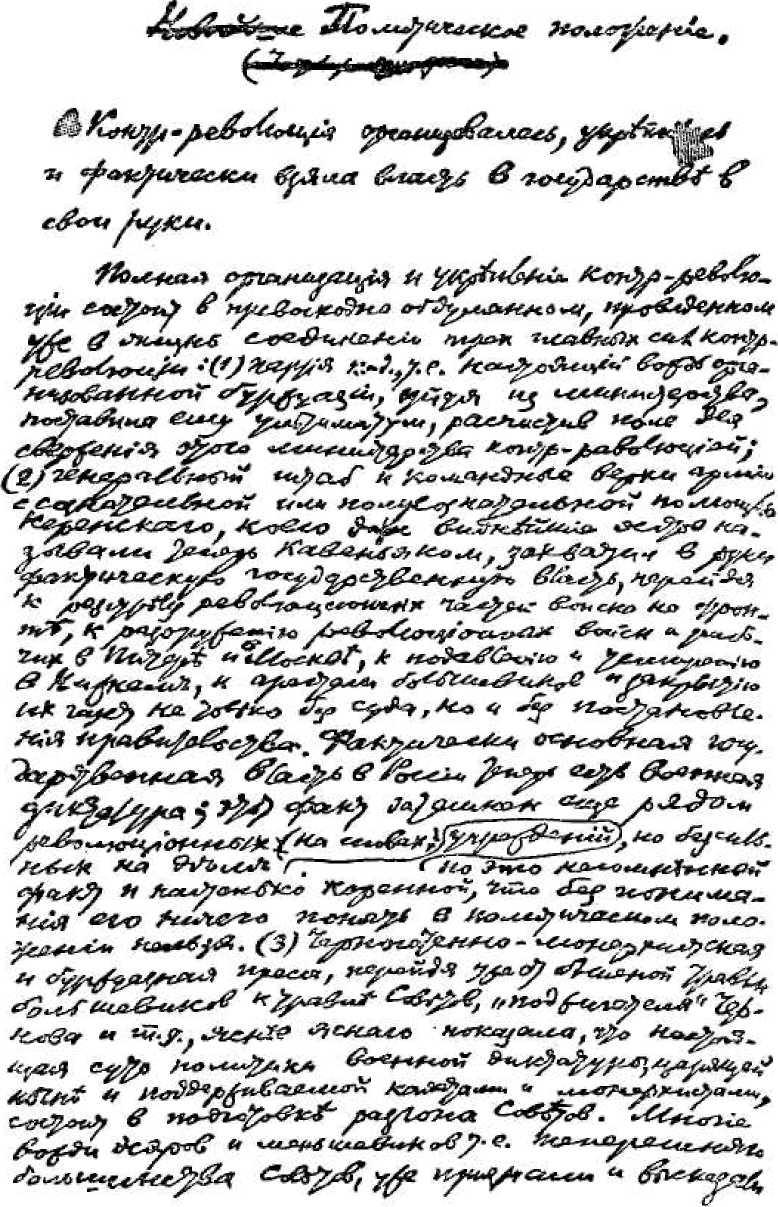 Политическое положение.
Контр-революція организовалась, укрѣпилась
и фактически взяла власть в государствѣ в
свои руки.
Полная организація и укрѣпленіе контр-револю-
ціи состоит в превосходно обдуманном, проведенном
уже в жизнь соединеніи трех главных сил контр-
революціи: (1) партія к.-д., т. е. настоящій вождь орга-
низованной буржуазіи, уйдя из министерства,
поставила ему ультиматум, расчистив поле для
сверженія этого министерства контр-революціей;
(2) генеральный штаб и командные верхи арміи
с сознательной или полусознательной помощью
Керенскаго, коего даже виднѣйшіе эсэры на-
зывали теперь Кавеньяком, захватил в руки
фактическую государственную власть, перейдя
к разстрѣлу революціонных частей войска на фрон-
тѣ, к разоруженію революціонных войск и рабо-
чих в Питерѣ и в Москвѣ, к подавленію и усмиренію
в Нижнем, к арестам большевиков и закрытію
их газет не только без суда, но и без постановле-
нія правительства. Фактически основная госу-
дарственная власть в Россіи теперь есть военная
диктатура; этот факт затемнен еще рядом
революціонных (на словах, учрежденій), но безсиль-
ных на дѣлѣ. Но это несомнѣнный
факт и настолько коренной, что без понима-
нія его ничего понять в политическом поло-
женіи нельзя. (3) Черносотенно-монархистская
и буржуазная пресса, перейдя уже от бѣшеной травли
большевиков к травлѣ Совѣтов, "поджигателя" Чер-
нова и т. д., яснѣе яснаго показала, что настоя-
щая суть политики военной диктатуры, царящей
нынѣ и поддерживаемой кадетами и монархистами,
состоит в подготовкѣ разгона Совѣтов. Многіе
вожди эсэров и меньшевиков, т. е. теперешняго
большинства Совѣтов, уже признали и высказали